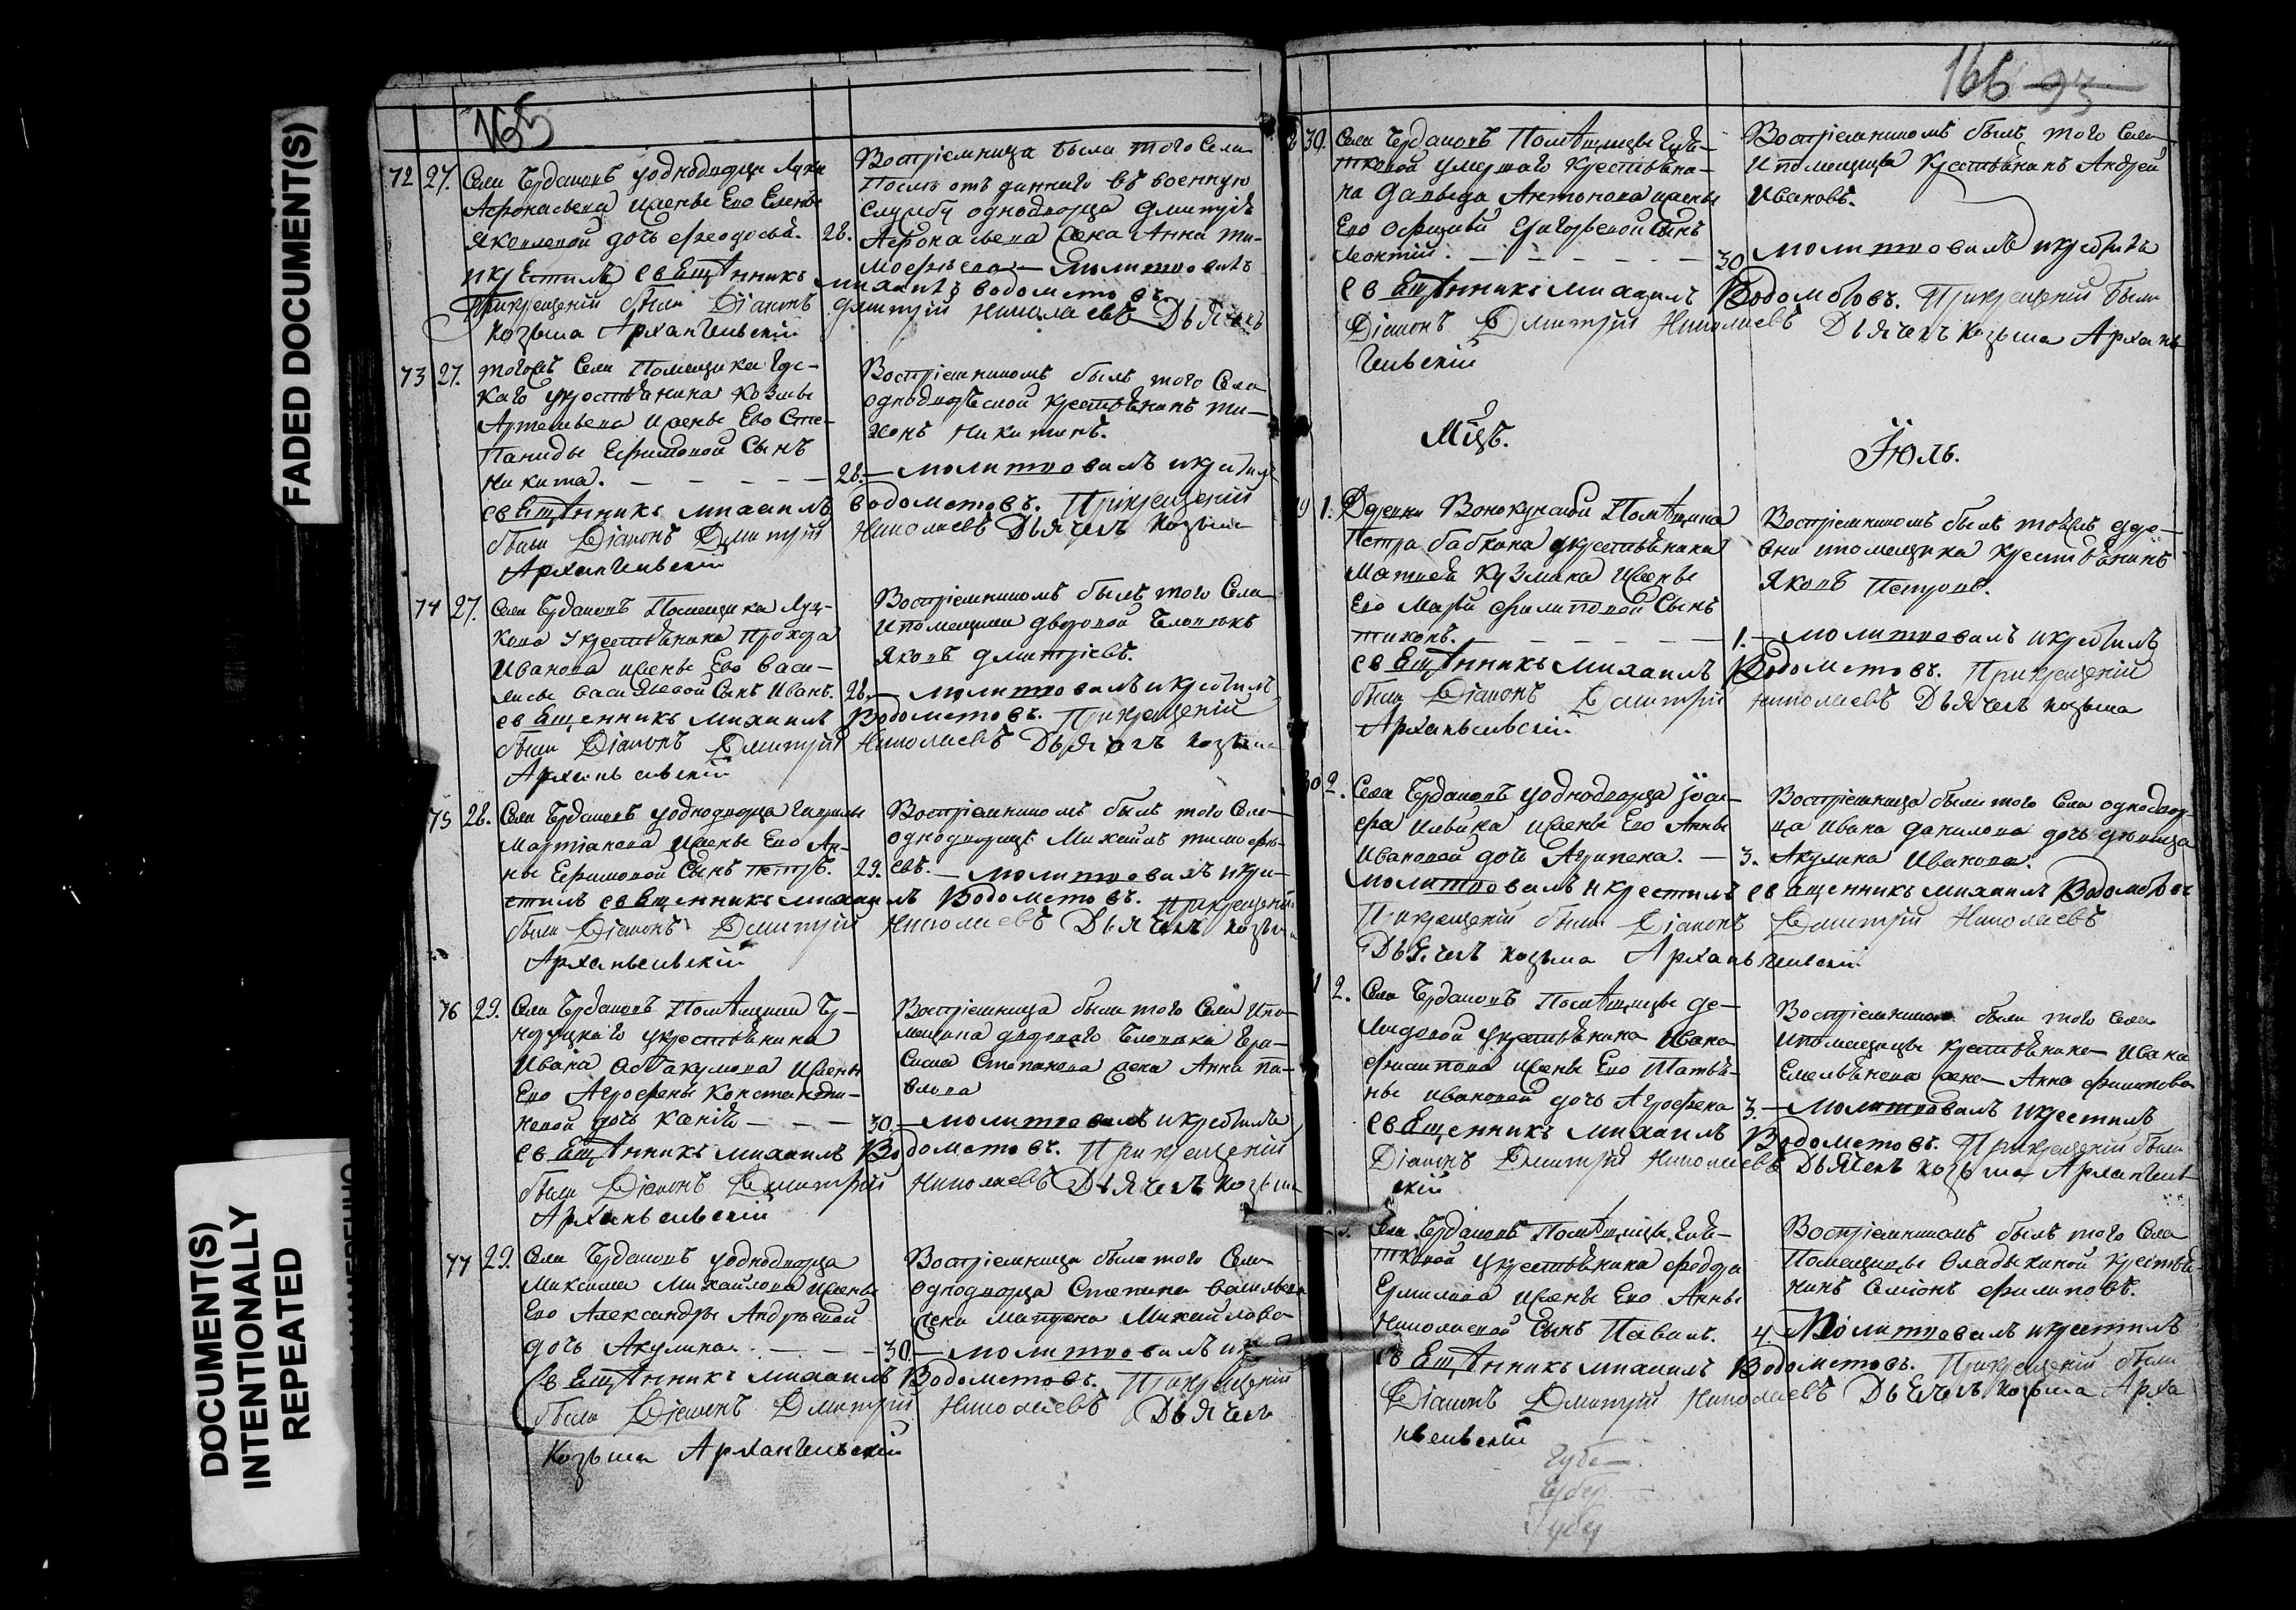 FADED DOCUMENT(S)
DOCUMENT(S)
INTENTIONALLY
REPEATED
165
72 27. Села Бурдановъ уоднодворца Луки
Афонасьева иженъ Ево Елены
Яковлевой дочь Феодосья. 28.
Востріемница была того Села
отъ даннаго въ военную
Службу однодворца Дмитрія
Афонасьева жена Анна Ти-
мофѣева — молитвовалъ
икрестилъ священникъ михаилъ водометовъ
Прикрещеніи были Діаконъ Дмитрій Николаевъ Дьячокъ
Козьма Архангельскій
73 27. тогожъ Села Помещика
каго укрестьянина Козмы
Артемьева иженъ Ево Сте-
паниды Ефимовой Сынъ
Никита. — 28.
Востріемникомъ былъ того Села
однодворческой крестьянинъ Ти-
хонъ Никитинъ.
— молитвовалъ икрестилъ
священникъ михаилъ водометовъ. Прикрещеніи
были Діаконъ Дмитрій Николаевъ Дьячекъ Козьма
Архангельскій
74 27. Села Помещика Луц-
кова Укрестьянина Прохора
Иванова иженъ Ево Васи-
лисы Васильевой Сынъ Иванъ. 28.
Востріемникомъ былъ того Села
ипомещика дворовой Человекъ
Яковъ Дмитріевъ.
— молитвовалъ икрестилъ
священникъ михаилъ Водометовъ. Прикрещеніи
были Діаконъ Дмитрій Николаевъ Дьячокъ Козьма
Архангельскій
75 28. Села уоднодворца Гаврилы
Мартіанова иженъ Ево Ан-
ны Ефимовой Сынъ Петръ. 29.
Востріемникомъ былъ того Села
однодворецъ Михаилъ Тимофѣ-
евъ. — молитвовалъ икре-
стилъ священникъ михаилъ Водометовъ. Прикрещеніи
были Діаконъ Дмитрій Николаевъ Дьячекъ Козьма
Архангельскій
76 29. Села Помѣщика
укрестьянина
Ивана Аввакумова иженъ
Ево Агрофены Константи-
новой дочь — 30.
Востріемница была того Села ипо-
мещика двороваго Человека Гера-
сима Степанова жена Анна Па-
влова
— молитвовалъ икрестилъ
священникъ михаилъ Водометовъ. Прикрещеніи
были Діаконъ Дмитрій Николаевъ Дьячекъ Козьма
Архангельскій
77 29. Села уоднодворца
Максима Михайлова иженъ
Ево Александры Андрѣевой
дочь Акулина. — 30.
Востріемница была того Села
однодворца Степана Васильева
жена Матрена Михайлова
— молитвовалъ
Священникъ михаилъ Водометовъ. Прикрещеніи
были Діаконъ Дмитрій Николаевъ Дьячекъ
Козьма Архангельскій
166 93
30. Села Помѣщицы
умершаго крестьяни-
на Давыда Антонова иженъ
Ево Офимьи Григорьевой Сынъ
Леонтій. — 30
Востріемникомъ былъ того Села
ипомещицы Крестьянинъ Андрей
Ивановъ.
молитвовалъ икрестилъ
священникъ михаилъ Водометовъ. Прикрещеніи были
Діаконъ Дмитрій Николаевъ Дьячекъ Козьма Архан-
гельскій
Мцъ. Іюль.
1. Деревни Помѣщика
Петра Бабкина укрестьянина
Матвея Кузмина иженъ
Ево Марьи Филиповой Сынъ
Тихонъ. — 1.
Востріемникомъ былъ тойже дере-
вни ипомещика крестьянинъ
Яковъ Петровъ.
— молитвовалъ икрестилъ
священникъ михаилъ Водометовъ. Прикрещеніи
были Діаконъ Дмитрій Николаевъ Дьячекъ Козьма
Архангельскій
2. Села уоднодворца Іоси-
фа иженъ Ево Анны
Ивановой дочь Агрипена. — 3.
Востріемница была того Села однодвор-
ца Ивана Данилова дочь девица
Акулина Иванова.
молитвовалъ икрестилъ священникъ михаилъ Водометовъ
Прикрещеніи были Діаконъ Дмитрій Николаевъ
Дьячекъ Козьма Архангельскій
2. Села Помѣщицы Де-
мидовой укрестьянина Ивана
Филипова иженъ Ево Татья-
ны Ивановой дочь Агрофена 3.
Востріемница была того Села
ипомещицы крестьянина Ивана
Емельянова жена Анна Филипова
— молитвовалъ икрестилъ
священникъ михаилъ Водометовъ. Прикрещеніи были
Діаконъ Дмитрій Николаевъ Дьячекъ Козьма Архангель-
скій
Села Помѣщицы
укрестьянина Федора
Ермилова иженъ Ево Анны
Николаевой Сынъ Павелъ. 4.
Востріемникомъ былъ того Села
Помещицы Владыкиной Крестья-
нинъ Семіонъ Филиповъ.
Молитвовалъ икрестилъ
священникъ михаилъ Водометовъ. Прикрещеніи были
Діаконъ Дмитрій Николаевъ Дьячекъ Козьма Арха
нгельскій
Губе
Губер
Губер